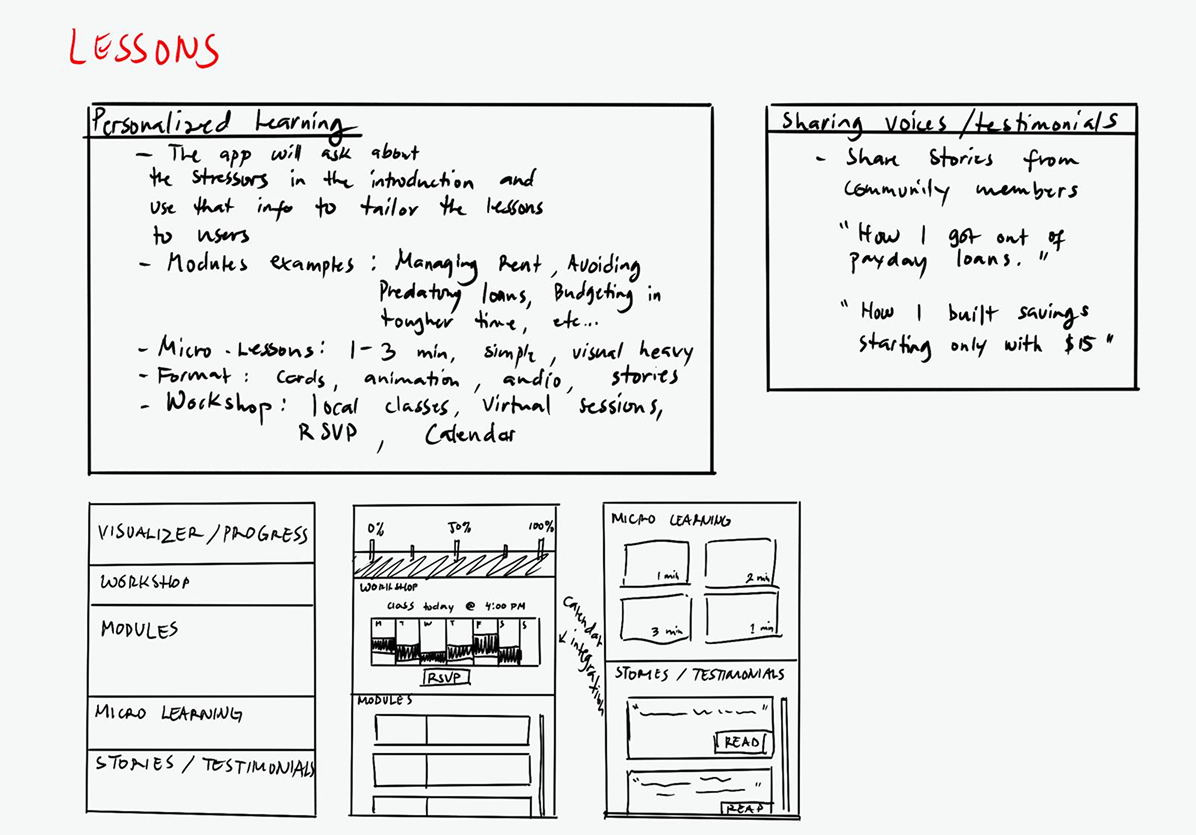 LESSONS
Personalized Learning
- The app will ask about
the stressors in the introduction and
use that info to tailor the lessons
to users
- Modules examples : Managing Rent, Avoiding
Predatory loans, Budgeting in
tougher time, etc...
- Micro-Lessons: 1-3 min, simple, visual heavy
- Format: cards, animation, audio, stories
- Workshop: local classes, Virtual sessions,
RSVP, Calendar
Sharing voices/testimonials
- Share stories from
community members
"How I got out of
payday loans."
"How I built savings
starting only with $15"
VISUALIZER/PROGRESS
WORKSHOP
MODULES
MICRO LEARNING
STORIES / TESTIMONIALS
0% 50% 100%
WORKSHOP
class today @ 4:00 PM
M T W T F S S
RSVP
MODULES
Calendar
integration
MICRO LEARNING
1 min 2 min
3 min 1 min
STORIES / TESTIMONIALS
READ
READ